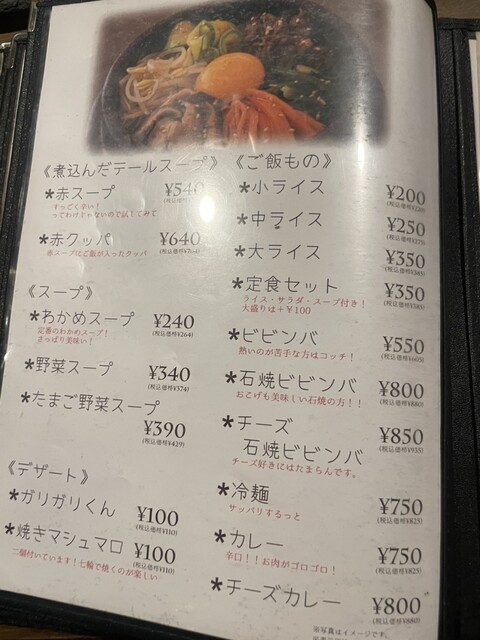 《煮込んだテールスープ》
*赤スープ ¥540
すっごく辛い！
ってわけじゃないので試してみて
*赤クッパ ¥640
(税込価格¥704)
赤スープにご飯が入ったクッパ
《スープ》
*わかめスープ ¥240
(税込価格¥264)
定番のわかめスープ！
さっぱり美味い！
*野菜スープ ¥340
(税込価格¥374)
*たまご野菜スープ
¥390
(税込価格¥429)
《デザート》
*ガリガリくん ¥100
(税込価格¥110)
*焼きマシュマロ ¥100
(税込価格¥110)
二個付いています！七輪で焼くのが楽しい
《ご飯もの》
*小ライス ¥200
(税込価格¥220)
*中ライス ¥250
(税込価格¥275)
*大ライス ¥350
(税込価格¥385)
*定食セット ¥350
(税込価格¥385)
ライス・サラダ・スープ付き！
大盛りは+¥100
*ビビンバ ¥550
(税込価格¥605)
熱いのが苦手な方はコッチ！
*石焼ビビンバ ¥800
(税込価格¥880)
おこげも美味しい石焼の方！！
*チーズ ¥850
(税込価格¥935)
石焼ビビンバ
チーズ好きにはたまらんです。
*冷麺 ¥750
(税込価格¥825)
サッパリするっと
*カレー ¥750
(税込価格¥825)
辛口！！お肉がゴロゴロ！
*チーズカレー ¥800
(税込価格¥880)
※写真はイメージです。